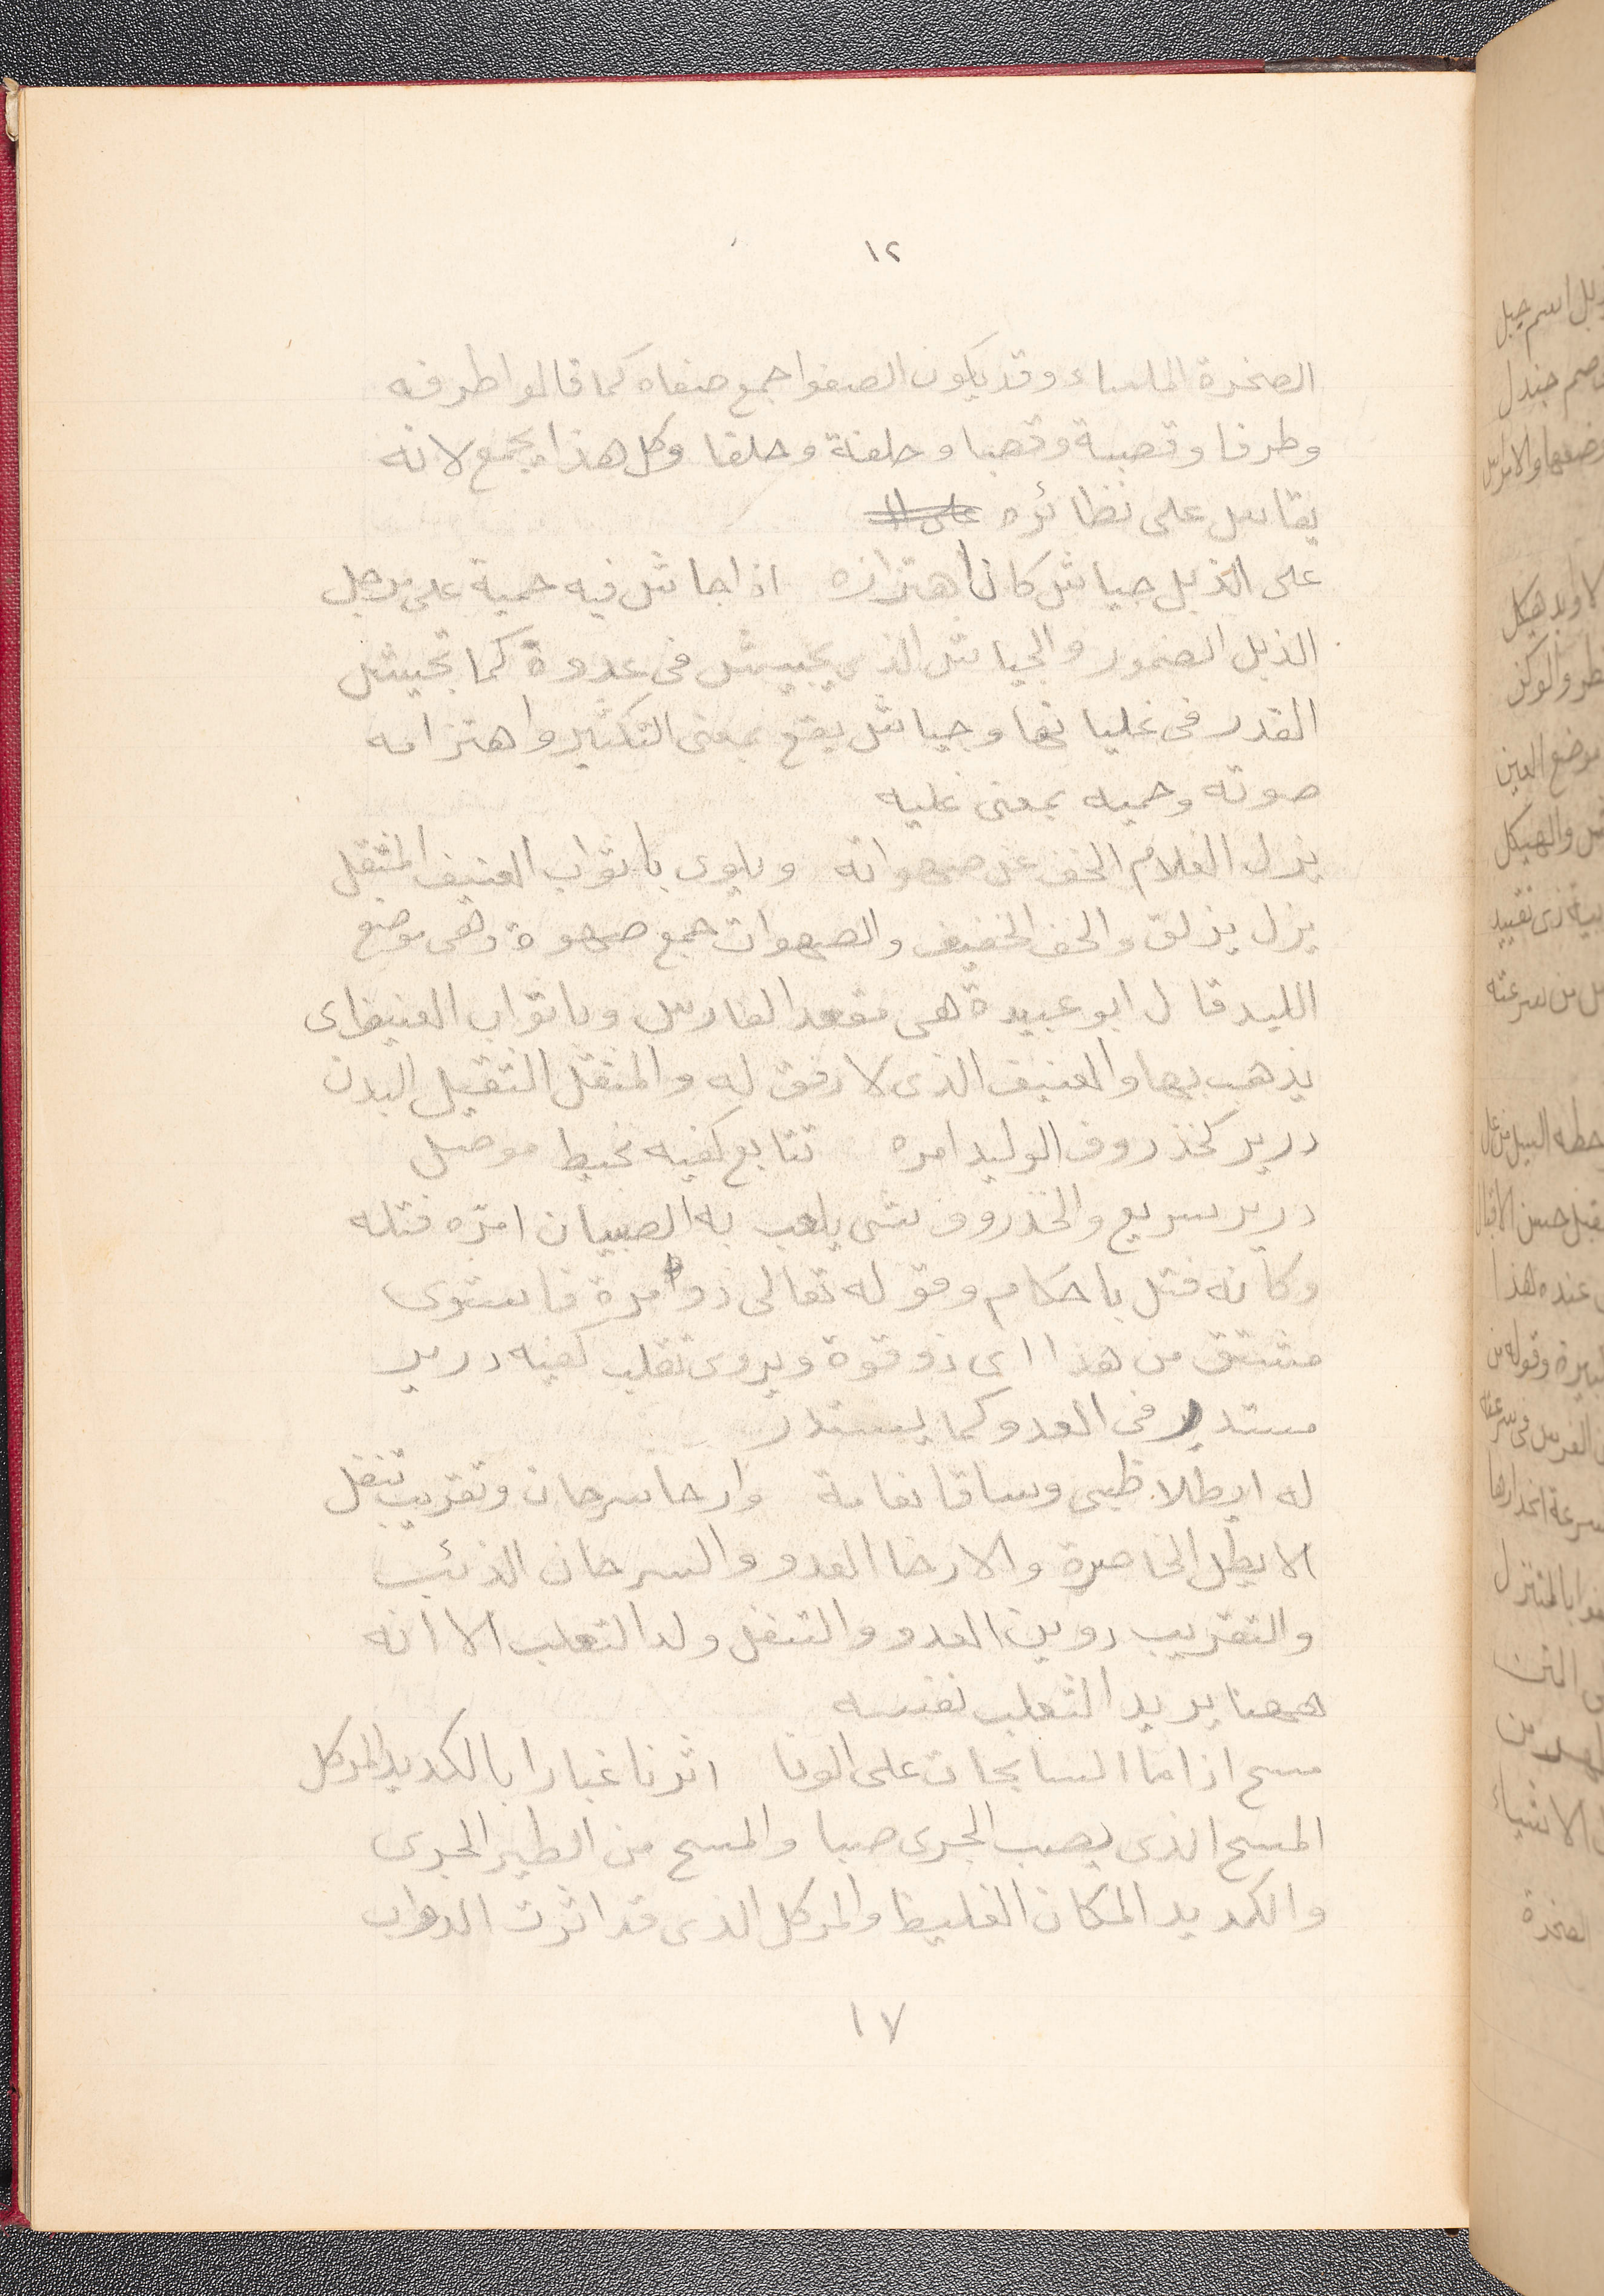 ١٢
الصخرة الملساء وقد يكون الصفوا جمع صفاه كما قالوا طرفه
وطرفا وقصبة وقصبا وحلفة وحلفا وكل هذا يجمع لانه
يقاس على نظائره
على الذبل جياش كان اهتزازه اذا جاش فيه حمية على مرجل
الذبل الضمور والجياش الذى يجيش فى عدوة كما تجيش
القدر فى غليانها وجياش يقع بمعنى التكثير واهتزامه
صوته وحميه بمعنى غليه
يزل الغلام الخف عن صهواته ويلوى باثواب العنيف المثقل
يزل يزلق والخف الخفيف والصهوات جمع صهوة وهى موضع
اللبد قال ابو عبيدة هى مقعد الفارس وباثواب العنيف اى
يذهب بها والعنيف الذى لا رفق له والمثقل الثقيل البدن
درير كخذروف الوليد امره تتابع كفيه بخيط موصل
درير سريع والخذروف شى يلعب به الصبيان امره فتله
وكانه فتل باحكام وقوله تعالى ذوا مرة فاستوى
مشتق من هذا اى ذو قوة ويروى تقلب كفيه درير
مستدير فى العدو كما يستدر
له ايطلا ظبى وساقا نعامة وارحا سرحان وتقريب تنفل
الايطل الخاصرة والارخا العدو والسرحان الذئب
والتقريب دوين العدو والتنفل ولد الثعلب الا انه
همهنا يريد الثعلب نفسه
مسح اذا ما السابحات على الونا اثرنا غبارا بالكديد المركل
المسح الذى يصب الجرى صبا والمسح من الطير الجرى
والكديد المكان الغليظ والمركل الذى قد اثرت الدواب
١٧